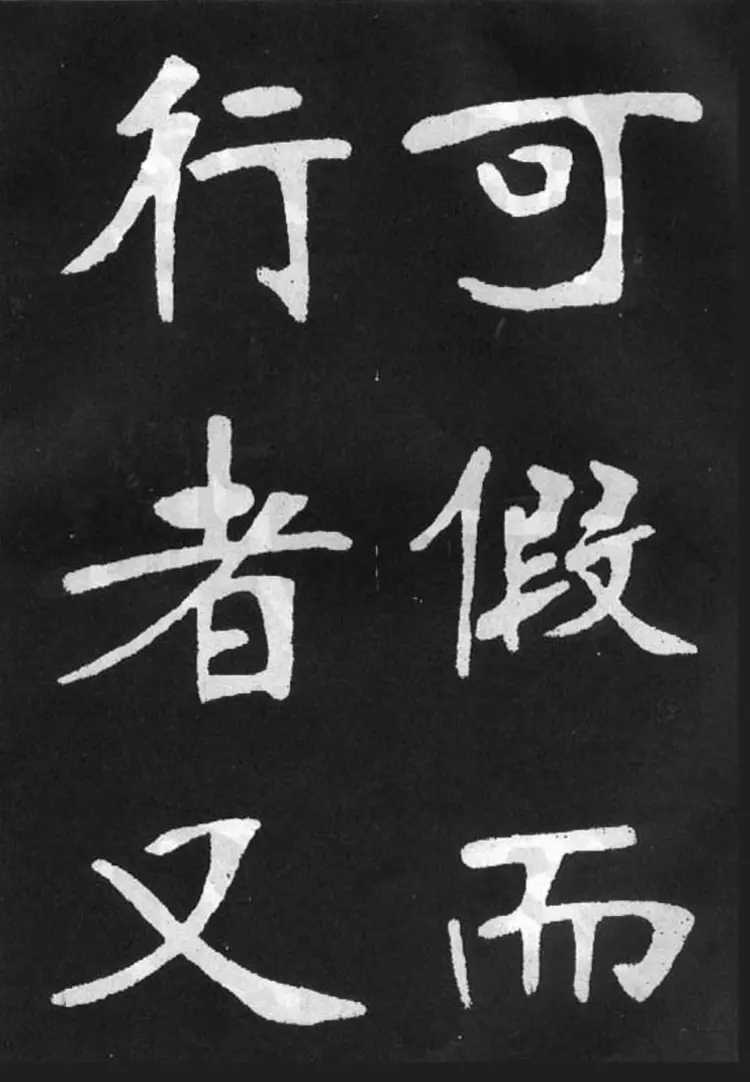 可假而
行者又